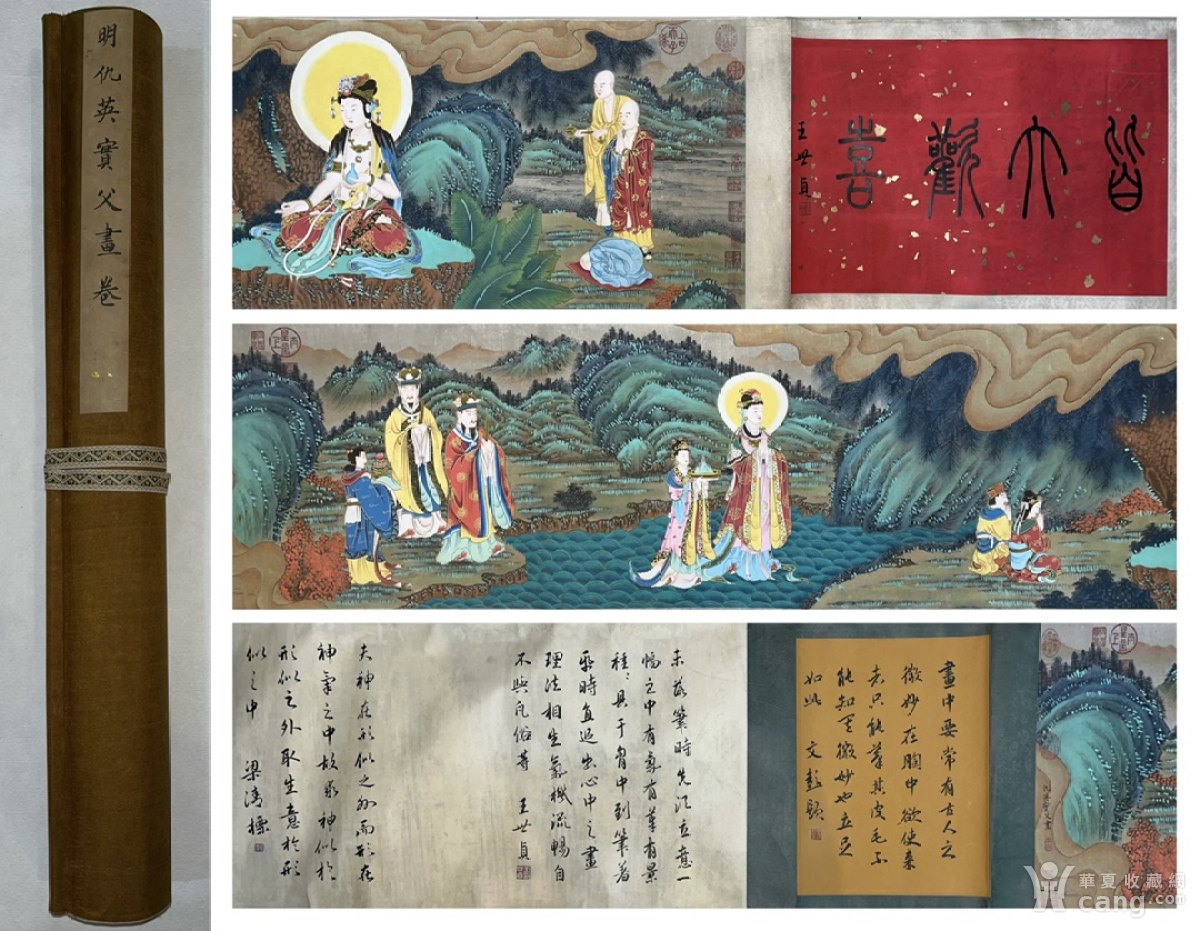 明仇英實父畫卷
皆大歡喜
王世貞
仇英實父畫
畫中要常有古人之
微妙在胸中欲使來
者只能摹其皮毛不
能知其微妙也立足
如此 文彭題
未落筆時先須立意一
幅之中有氣有筆有景
種種具于胷中到筆著
紙時直追出心中之畫
理法相生氣機流暢自
不與凡俗等 王世貞
夫神在形似之外而形在
神氣之中故求神似於
形似之外取生意於形
似之中 梁清標
華夏收藏網
cang.com